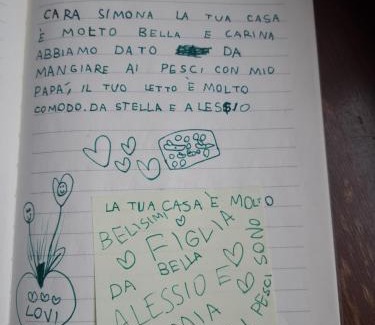 CARA SIMONA LA TUA CASA
È MOLTO BELLA E CARINA
ABBIAMO DATO DA
MANGIARE AI PESCI CON MIO
PAPÀ, IL TUO LETTO È MOLTO
COMODO. DA STELLA E ALESSIO
LA TUA CASA È MOLTO
BELISIMI
FIGLIA
BELLA
DA
ALESSIO E
PESCI SONO
LOVI